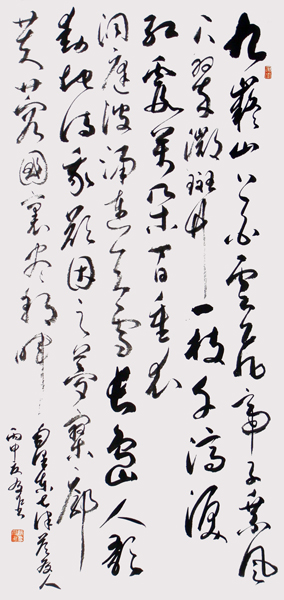 九嶷山上白雲飛帝子乘風
下翠微斑竹一枝千滴淚
紅霞萬朵百重衣
洞庭波涌連天雪長島人歌
動地詩我欲因之夢寥廓
芙蓉國裏盡朝暉
毛澤東七律答友人
丙申夏